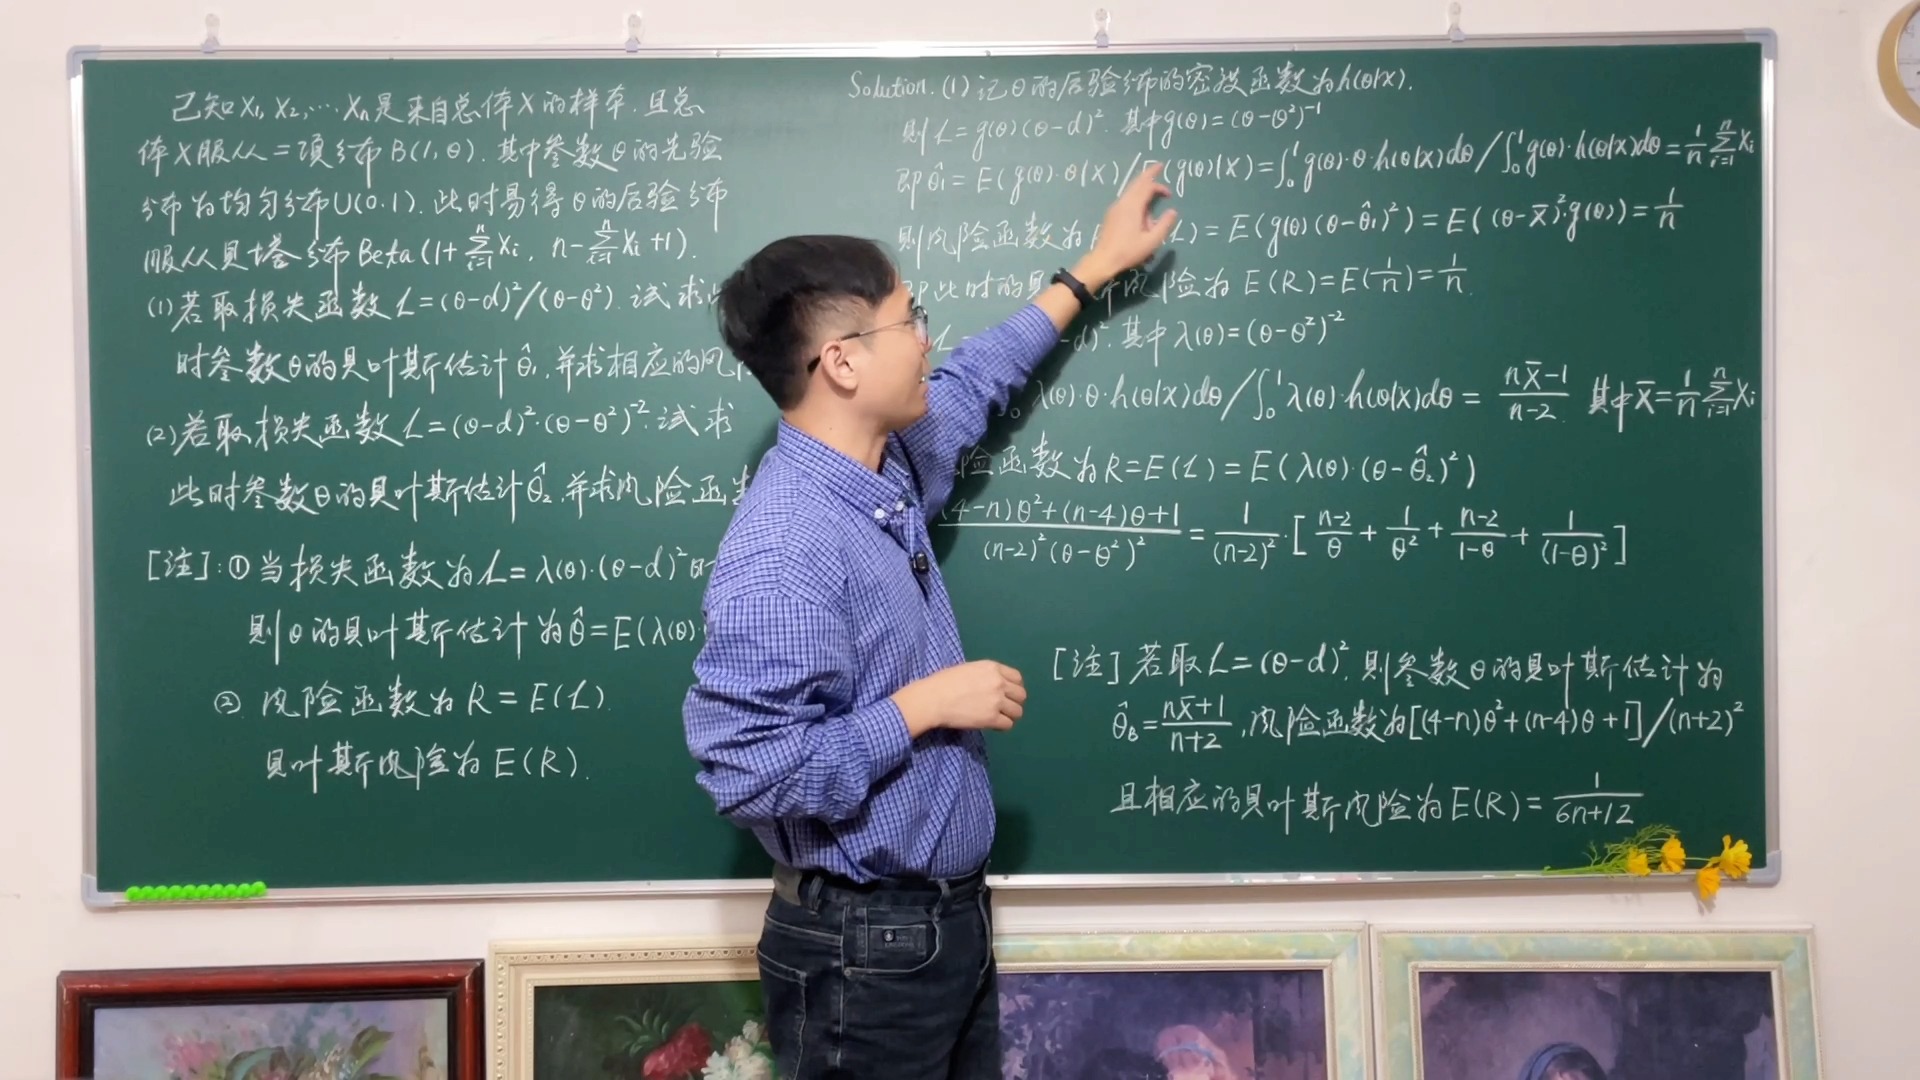 已知X₁, X₂, ⋯ Xₙ是来自总体X的样本. 且总
体X服从二项分布B(1, θ). 其中参数θ的先验
分布为均匀分布U(0.1). 此时易得θ的后验分布
服从贝塔分布Beta(1+∑ᵢ₌₁ⁿXᵢ, n-∑ᵢ₌₁ⁿXᵢ+1).
(1)若取损失函数L=(θ-d)²/(θ-θ²). 试求
时参数θ的贝叶斯估计θ̂₁, 并求相应的风
(2)若取损失函数L=(θ-d)²·(θ-θ²)⁻². 试求
此时参数θ的贝叶斯估计θ̂₂, 并求风险函
[注]: ①当损失函数为L=λ(θ)·(θ-d)²时
则θ的贝叶斯估计为θ̂=E(λ(θ)
②. 风险函数为R=E(L).
贝叶斯风险为E(R).
Solution. (1) 记θ的后验分布的密度函数为h(θ|x).
则L=g(θ)(θ-d)². 其中g(θ)=(θ-θ²)⁻¹
即θ̂₁=E(g(θ)·θ|X)/E(g(θ)|X)=∫₀¹g(θ)·θ·h(θ|x)dθ/∫₀¹g(θ)·h(θ|x)dθ=1/n ∑ᵢ₌₁ⁿXᵢ
则风险函数为 L)=E(g(θ)(θ-θ̂₁)²)=E((θ-X̄)²·g(θ))=1/n
即此时的贝 斯风险为E(R)=E(1/n)=1/n.
L= -d)². 其中λ(θ)=(θ-θ²)⁻²
λ(θ)·θ·h(θ|x)dθ/∫₀¹λ(θ)·h(θ|x)dθ=(nX̄-1)/(n-2) 其中X̄=1/n ∑ᵢ₌₁ⁿXᵢ
险函数为R=E(L)=E(λ(θ)·(θ-θ̂₂)²)
((4-n)θ²+(n-4)θ+1)/((n-2)²(θ-θ²)²)=1/(n-2)²·[(n-2)/θ+1/θ²+(n-2)/(1-θ)+1/(1-θ)²]
[注]若取L=(θ-d)². 则参数θ的贝叶斯估计为
θ̂_B=(nX̄+1)/(n+2), 风险函数为[(4-n)θ²+(n-4)θ+1]/(n+2)²
且相应的贝叶斯风险为E(R)=1/(6n+12)